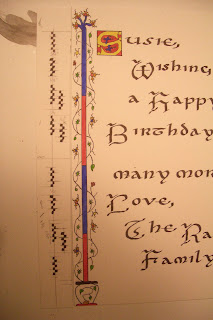 Susie,
Wishing,
a Happy
Birthday
many mor
Love,
The Ra
Family